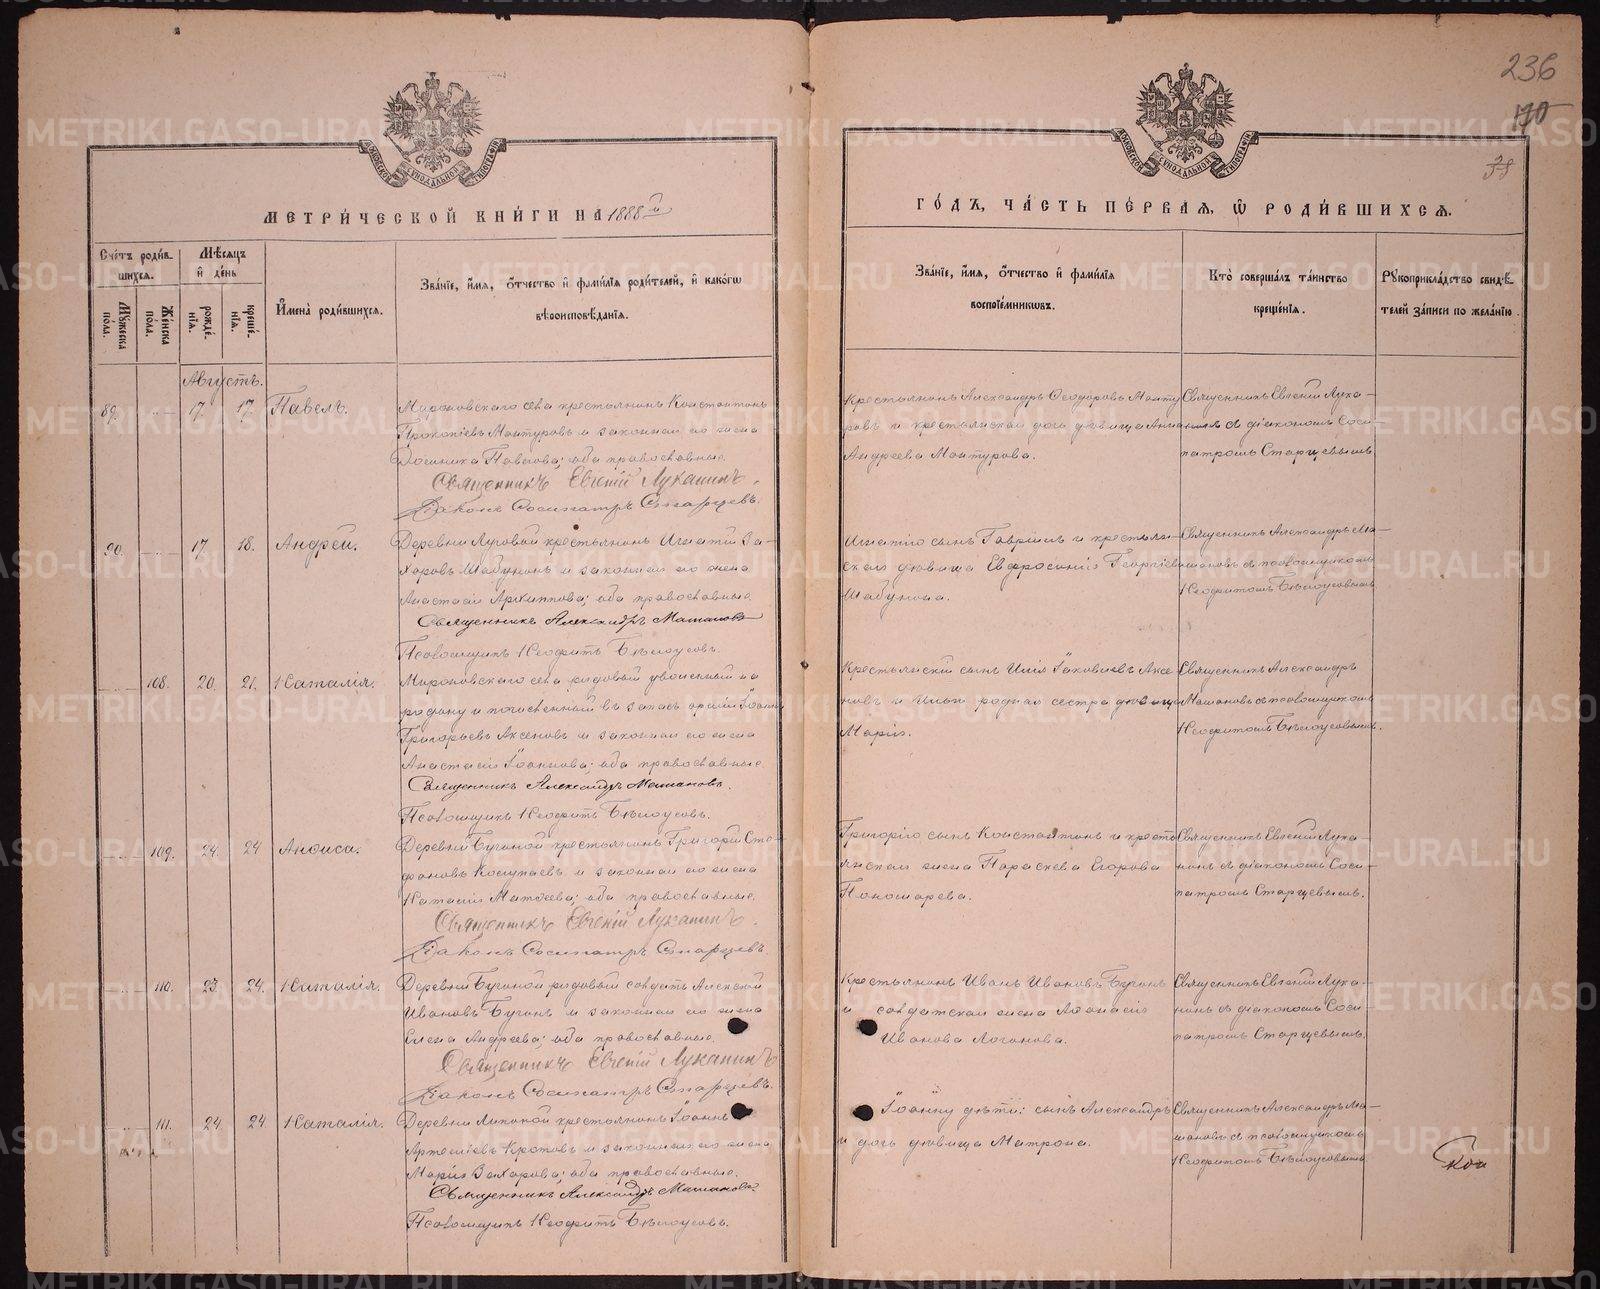 236
170
38
МЕТРИ́ЧЕСКОЙ КНИ́ГИ НА 1888й
ГО́ДЪ, ЧА́СТЬ ПЕ́РВАЯ, Ѡ РОДИ́ВШИХСЯ.
Сче́тъ роди́в-
шихся.
Мꙋжеска пола.
Же́нска пола.
Мѣ́сяцъ
и҆ де́нь
рожде́-
нїя.
креще́-
нїя.
И҆мена̀ роди́вшихся.
Зва́нїе, и҆́мя, ѻ҆́тчество и҆ фами́лїя роди́телей, и҆ како́гѡ
вѣроисповѣ́данїя.
Зва́нїе, и҆́мя, ѻ҆́тчество и҆ фами́лїя
воспрїе́мниковъ.
Кто̀ соверша́лъ та́инство
креще́нїя.
Рꙋкоприкла́дство свидѣ́-
телей за́писи по жела́нїю.
Августъ.
89. 17. 17. Павелъ.
Мироновскаго села крестьянинъ Константинъ
Прокопіевъ Мантуровъ и законная его жена
Домника Павлова; оба православные.
Священникъ Евгеній Луканинъ.
Діаконъ Сосипатръ Старцевъ.
Крестьянинъ Александръ Ѳеодоровъ Манту
ровъ и крестьянская дочь дѣвица Анна
Андреева Мантурова.
Священникъ Евгеній Лука-
нинъ съ діакономъ Соси-
патромъ Старцевымъ.
90. 17. 18. Андрей.
Деревни Луговой крестьянинъ Игнатій За-
харовъ Шабунинъ и законная его жена
Анастасія Архиппова; оба православные.
Священникъ Александръ Машановъ
Псаломщикъ Неофитъ Бѣлоусовъ.
Игнатія сынъ Гавріилъ и крестьян-
ская дѣвица Евфросинія Георгіева
Шабунина.
Священникъ Александръ Ма-
шановъ съ псаломщикомъ
Неофитомъ Бѣлоусовымъ
108. 20. 21. Наталія.
Мироновскаго села рядовой уволенный на
родину и зачисленный въ запасъ арміи Іоаннъ
Григорьевъ Аксеновъ и законная его жена
Анастасія Іоаннова; оба православные.
Священникъ Александръ Машановъ.
Псаломщикъ Неофитъ Бѣлоусовъ.
Крестьянскій сынъ Илія Іаковлевъ Аксе
новъ и Ильи родная сестра дѣвица
Марія.
Священникъ Александръ
Машановъ съ псаломщикомъ
Неофитомъ Бѣлоусовымъ.
109. 24. 24 Анѳиса.
Деревни Бучиной крестьянинъ Григорій Сте-
фановъ и законная его жена
Наталія Матвѣева; оба православные.
Священникъ Евгеній Луканинъ.
Діаконъ Сосипатръ Старцевъ.
Григорія сынъ Константинъ и кресть
янская жена Параскева Егорова
Пономарева.
Священникъ Евгеній Лука-
нинъ съ діакономъ Соси-
патромъ Старцевымъ.
110. 23. 24. Наталія.
Деревни Бучиной рядовой солдатъ Алексѣй
Ивановъ Бучинъ и законная его жена
Елена Андреева; оба православные.
Священникъ Евгеній Луканинъ
Діаконъ Сосипатръ Старцевъ.
Крестьянинъ Иванъ Ивановъ Бучинъ
и солдатская жена Аѳанасія
Иванова Логинова.
Священникъ Евгеній Лука-
нинъ съ діакономъ Соси-
патромъ Старцевымъ.
111. 24. 24 Наталія.
Деревни Липиной крестьянинъ Іоаннъ
Артеміевъ Кротовъ и законная его жена
Марія Захарова; оба православные.
Священникъ Александръ Машановъ.
Псаломщикъ Неофитъ Бѣлоусовъ.
Іоанну дѣти: сынъ Александръ
и дочь дѣвица Матрона.
Священникъ Александръ Ма-
шановъ съ псаломщикомъ
Неофитомъ Бѣлоусовымъ
METRIKI.GASO-URAL.RU